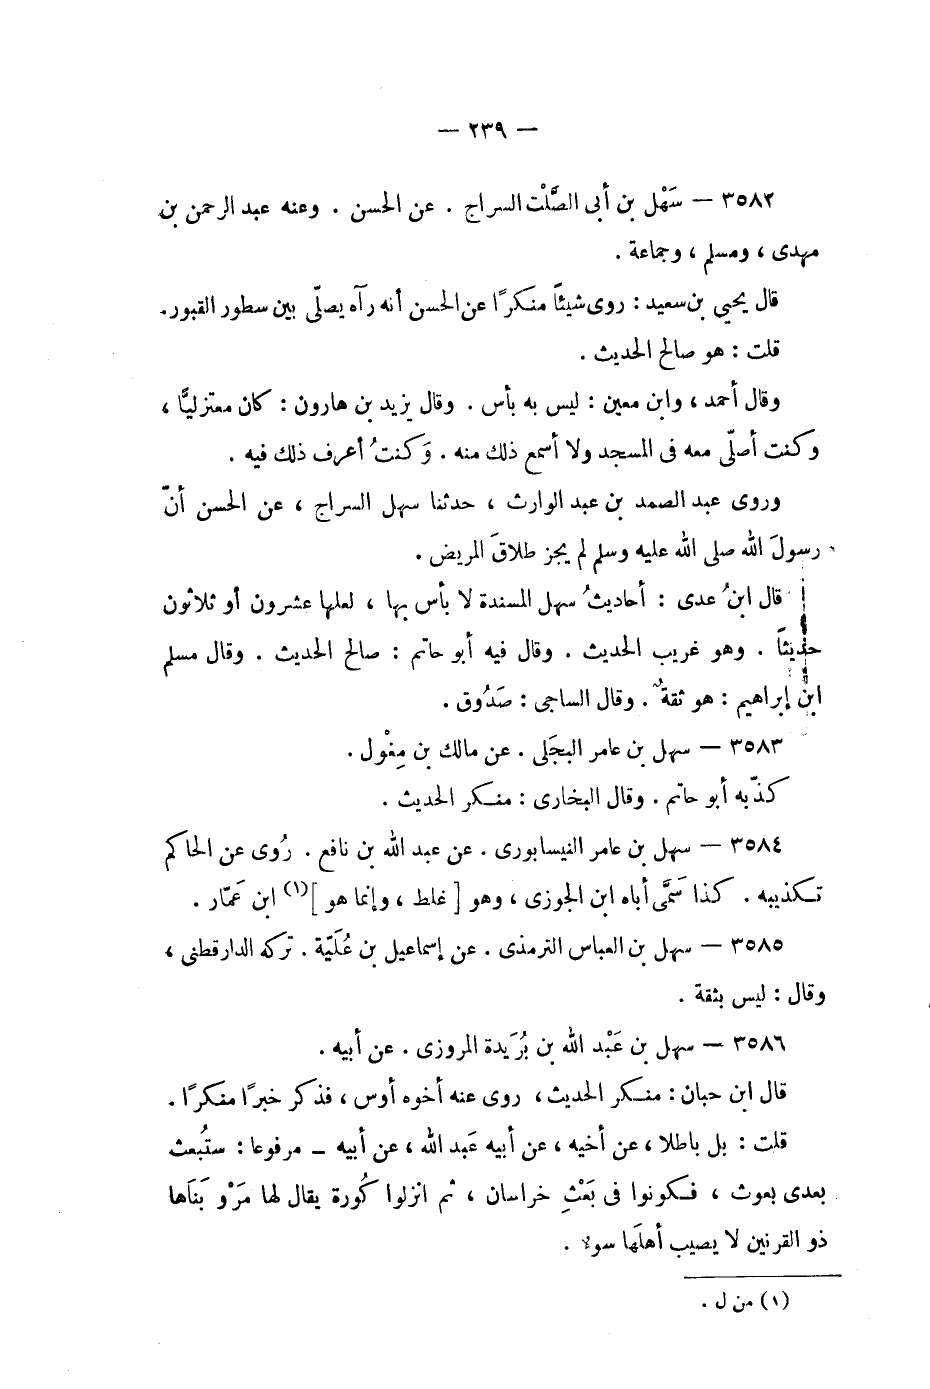 — ٢٣٩ —
٣٥٨٢ — سَهْل بن أبى الصَّلْت السراج . عن الحسن . وعنه عبد الرحمن بن
مهدى ، ومسلم ، وجماعة .
قال يحيى بن سعيد : روى شيئًا منكرًا عن الحسن أنه رآه يصلّى بين سطور القبور .
قلت : هو صالح الحديث .
وقال أحمد ، وابن معين : ليس به بأس . وقال يزيد بن هارون : كان معتزليًّا ،
وكنت أصلّى معه فى المسجد ولا أسمع ذلك منه . وَكنتُ أعرف ذلك فيه .
وروى عبد الصمد بن عبد الوارث ، حدثنا سهل السراج ، عن الحسن أنّ
رسولَ الله صلى الله عليه وسلم لم يجز طلاقَ المريض .
قال ابنُ عدى : أحاديثُ سهل المسندة لا بأس بها ، لعلها عشرون أو ثلاثون
حديثًا . وهو غريب الحديث . وقال فيه أبو حاتم : صالح الحديث . وقال مسلم
ابن إبراهيم : هو ثقةٌ . وقال الساجى : صَدُوق .
٣٥٨٣ — سهل بن عامر البجَلى . عن مالك بن مِغْول .
كذّبه أبو حاتم . وقال البخارى : منكر الحديث .
٣٥٨٤ — سهل بن عامر النيسابورى . عن عبد الله بن نافع . رُوى عن الحاكم
تكذيبه . كذا سَمَّى أباه ابن الجوزى ، وهو [ غلط ، وإنما هو ](١) ابن عَمّار .
٣٥٨٥ — سهل بن العباس الترمذى . عن إسماعيل بن عُلَيّة . تركه الدارقطنى ،
وقال : ليس بثقة .
٣٥٨٦ — سهل بن عَبْد الله بن بُرَيدة المروزى . عن أبيه .
قال ابن حبان : منكر الحديث ، روى عنه أخوه أوس ، فذكر خبرًا منكرًا .
قلت : بل باطلا ، عن أخيه ، عن أبيه عَبد الله ، عن أبيه – مرفوعا : ستُبعث
بعدى بعوث ، فكونوا فى بَعْثِ خراسان ، ثم انزلوا كُورة يقال لها مَرْو بَنَاها
ذو القرنين لا يصيب أهلَها سوء .
(١) من ل .